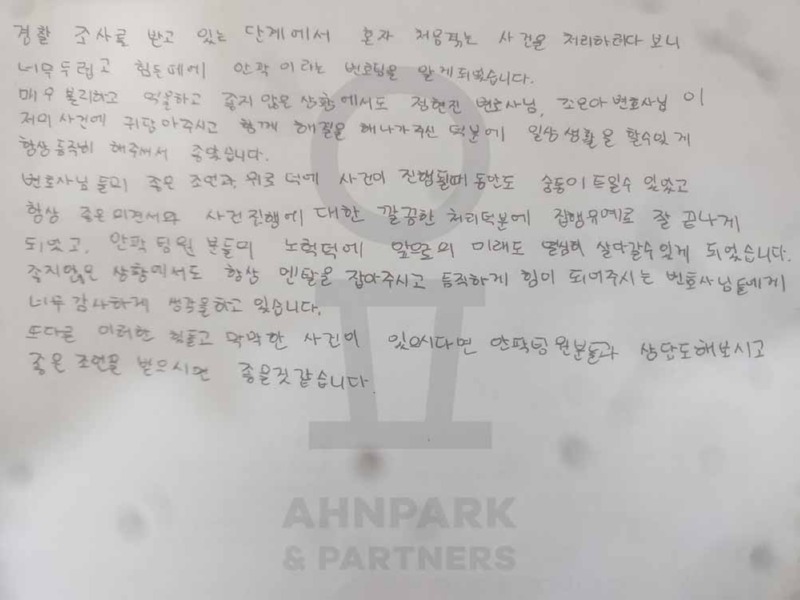 경찰 조사를 받고 있는 단계에서 혼자 처음겪는 사건을 처리하려다 보니
너무두렵고 힘든때에 안팍 이라는 변호팀을 알게되었습니다.
매우 불리하고 억울하고 좋지 않은 상황에서도 정현진 변호사님, 조은아변호사님 이
저의 사건에 귀담아주시고 함께 해결을 해나가주신 덕분에 일상생활을 할수있게
항상 든든히 해주셔서 좋았습니다.
변호사님들의 좋은 조언과 위로 덕에 사건이 진행될때동안도 숨통이 트일수 있었고
항상 좋은의견서와 사건진행에 대한 깔끔한 처리덕분에 집행유예로 잘 끝나게
되었고, 안팍팀원 분들의 노력덕에 앞으로의 미래도 열심히 살아갈수있게 되었습니다.
좋지않은 상황에서도 항상 멘탈을 잡아주시고 든직하게 힘이 되어주시는 변호사님들에게
너무감사하게 생각을하고 있습니다.
또다른 이러한 힘들고 막막한 사건이 있으시다면 안팍팀원분들과 상담도해보시고
좋은 조언을 받으시면 좋을것같습니다.
AHNPARK
& PARTNERS